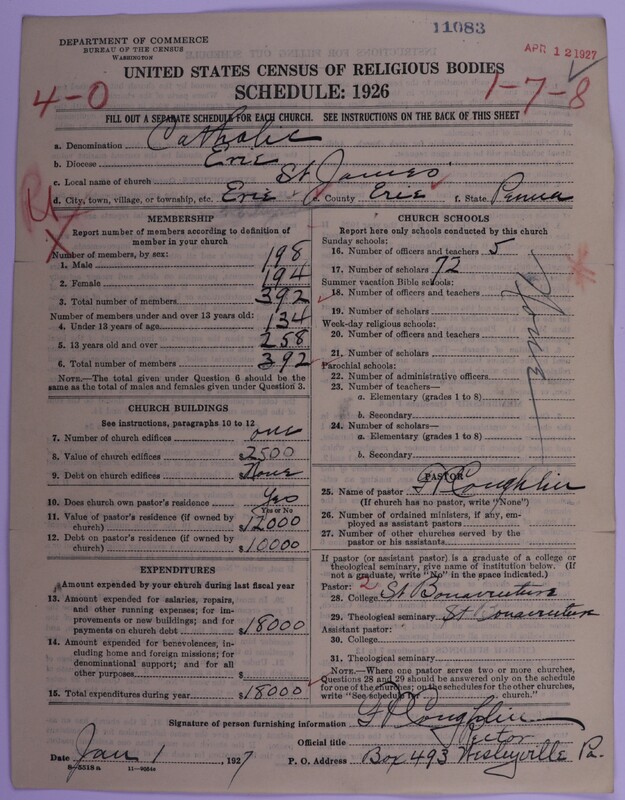 11083
DEPARTMENT OF COMMERCE
BUREAU OF THE CENSUS
WASHINGTON
APR 12 1927
UNITED STATES CENSUS OF RELIGIOUS BODIES
SCHEDULE: 1926
4-0
1-7-8
FILL OUT A SEPARATE SCHEDULE FOR EACH CHURCH. SEE INSTRUCTIONS ON THE BACK OF THIS SHEET
a. Denomination Catholic
b. Diocese Erie
c. Local name of church St James'
d. City, town, village, or township, etc. Erie e. County Erie f. State Penna
MEMBERSHIP
Report number of members according to definition of
member in your church
Number of members, by sex:
1. Male 198
2. Female 194
3. Total number of members 392
Number of members under and over 13 years old:
4. Under 13 years of age 134
5. 13 years old and over 258
6. Total number of members 392
NOTE.—The total given under Question 6 should be the
same as the total of males and females given under Question 3.
CHURCH BUILDINGS
See instructions, paragraphs 10 to 12
7. Number of church edifices one
8. Value of church edifices $2500
9. Debt on church edifices None
10. Does church own pastor's residence Yes
(Yes or No)
11. Value of pastor's residence (if owned by
church) $12000
12. Debt on pastor's residence (if owned by
church) $10000
EXPENDITURES
Amount expended by your church during last fiscal year
13. Amount expended for salaries, repairs,
and other running expenses; for im-
provements or new buildings; and for
payments on church debt $18000
14. Amount expended for benevolences, in-
cluding home and foreign missions; for
denominational support; and for all
other purposes $
15. Total expenditures during year $18000
CHURCH SCHOOLS
Report here only schools conducted by this church
Sunday schools:
16. Number of officers and teachers 5
17. Number of scholars 72
Summer vacation Bible schools:
18. Number of officers and teachers
19. Number of scholars
Week-day religious schools:
20. Number of officers and teachers
21. Number of scholars
None
Parochial schools:
22. Number of administrative officers
23. Number of teachers—
a. Elementary (grades 1 to 8)
b. Secondary
24. Number of scholars—
a. Elementary (grades 1 to 8)
b. Secondary
PASTOR
25. Name of pastor Coughlin
(If church has no pastor, write "None")
26. Number of ordained ministers, if any, em-
ployed as assistant pastors
27. Number of other churches served by the
pastor or his assistants
If pastor (or assistant pastor) is a graduate of a college or
theological seminary, give name of institution below. (If
not a graduate, write "No" in the space indicated.)
Pastor: 2
28. College St Bonaventure
29. Theological seminary St Bonaventure
Assistant pastor:
30. College
31. Theological seminary
NOTE.—Where one pastor serves two or more churches,
Questions 28 and 29 should be answered only on the schedule
for one of the churches; on the schedules for the other churches,
write "See schedule church."
Signature of person furnishing information Coughlin
Official title Rector
Date Jan 1 1927 P. O. Address Box 493 Wesleyville Pa.